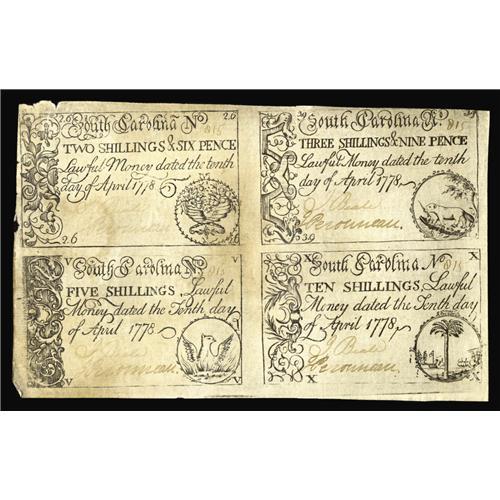 26 26
South Carolina No 815
TWO SHILLINGS & SIX PENCE
Lawful Money dated the tenth
day of April 1778
Peronneau.
2.6 2.6
39 39
South Carolina No. 815
THREE SHILLINGS & NINE PENCE
Lawful Money dated the tenth
day of April 1778.
J. Beale
Peronneau.
39
V V
South Carolina No 815
FIVE SHILLINGS, Lawful
Money dated the Tenth day
of April 1778
Peronneau
V V
X X
South Carolina No 815
TEN SHILLINGS, Lawful
Money dated the Tenth day
of April 1778,
J. Beale
Peronneau.
X X